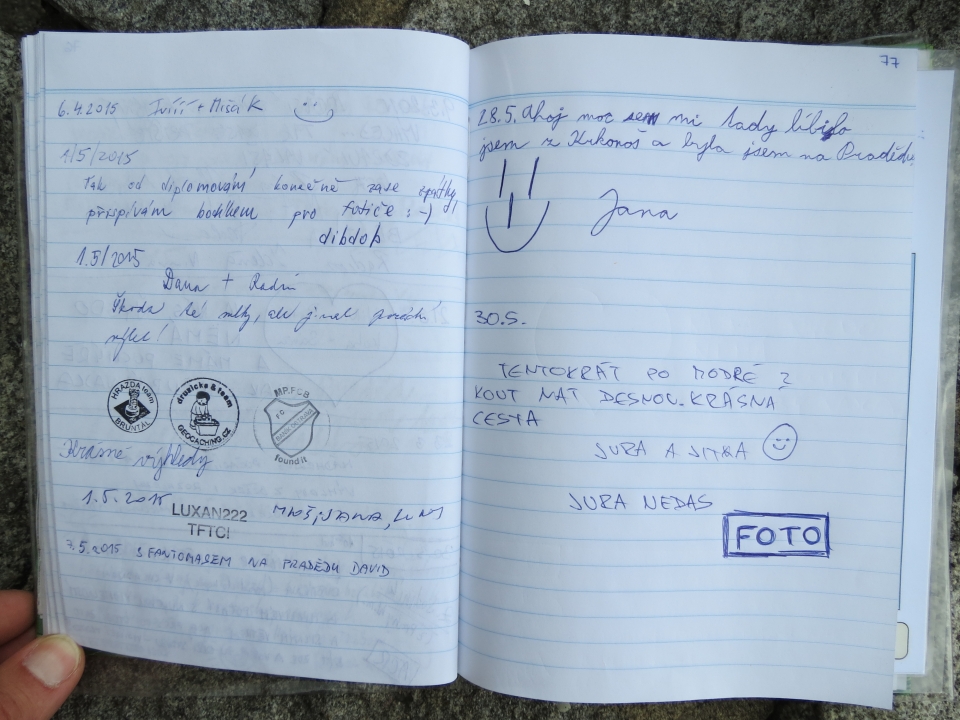 6.4.2015 Jiřík + Mišák
1/5/2015
Tak od diplomování konečně zase zpátky,
přispívám bodíkem pro fotiče :-)
dibdob
1.5/2015
Dana + Radim
Škoda té mlhy, ale jinak
výlet!
HRAZDA team
BRUNTÁL
druzicke & team
GEOCACHING.CZ
MP.FCB
found it
Krásné výhledy
1.5.2015
LUXAN222
TFTC!
MILOŠ, JANA,
7.5.2015 S FANTOMASEM NA PRADĚDU DAVID
77
28.5. Ahoj moc sem mi tady líbilo
jsem z Krkonoš a byla jsem na Pradědu
Jana
30.5.
TENTOKRÁT PO MODRÉ Z
KOUT NAT DESNOU. KRASNÁ
CESTA
JURA A JITKA
JURA NEDAS
FOTO